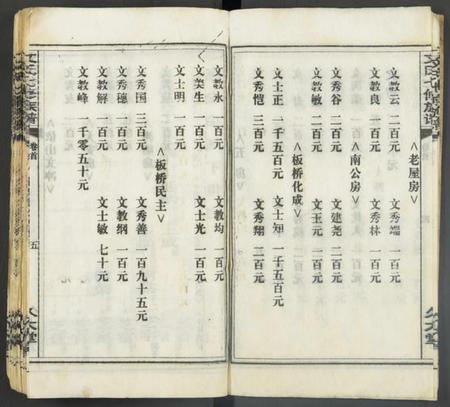 <老屋房>
文教云 二百元 文秀端 一百元
文教良 一百元 文秀林 一百元
<南公房>
文秀谷 二百元 文建尧 二百元
文教敏 二百元 文王元 一百元
<板桥化成>
文士正 一千元 文士知 一千五百元
文秀恺 三百元 文秀翔 二百元
文教永 一百元 文教均 一百元
文美生 一百元 文士光 一百元
文士明 一百元
<板桥民主>
文秀国 三百元 文秀善 一百九十五元
文秀德 一百元 文教纲 一百元
文教解 一百元 文士敏 七十元
文教峰 一千零五十元
卷首
五